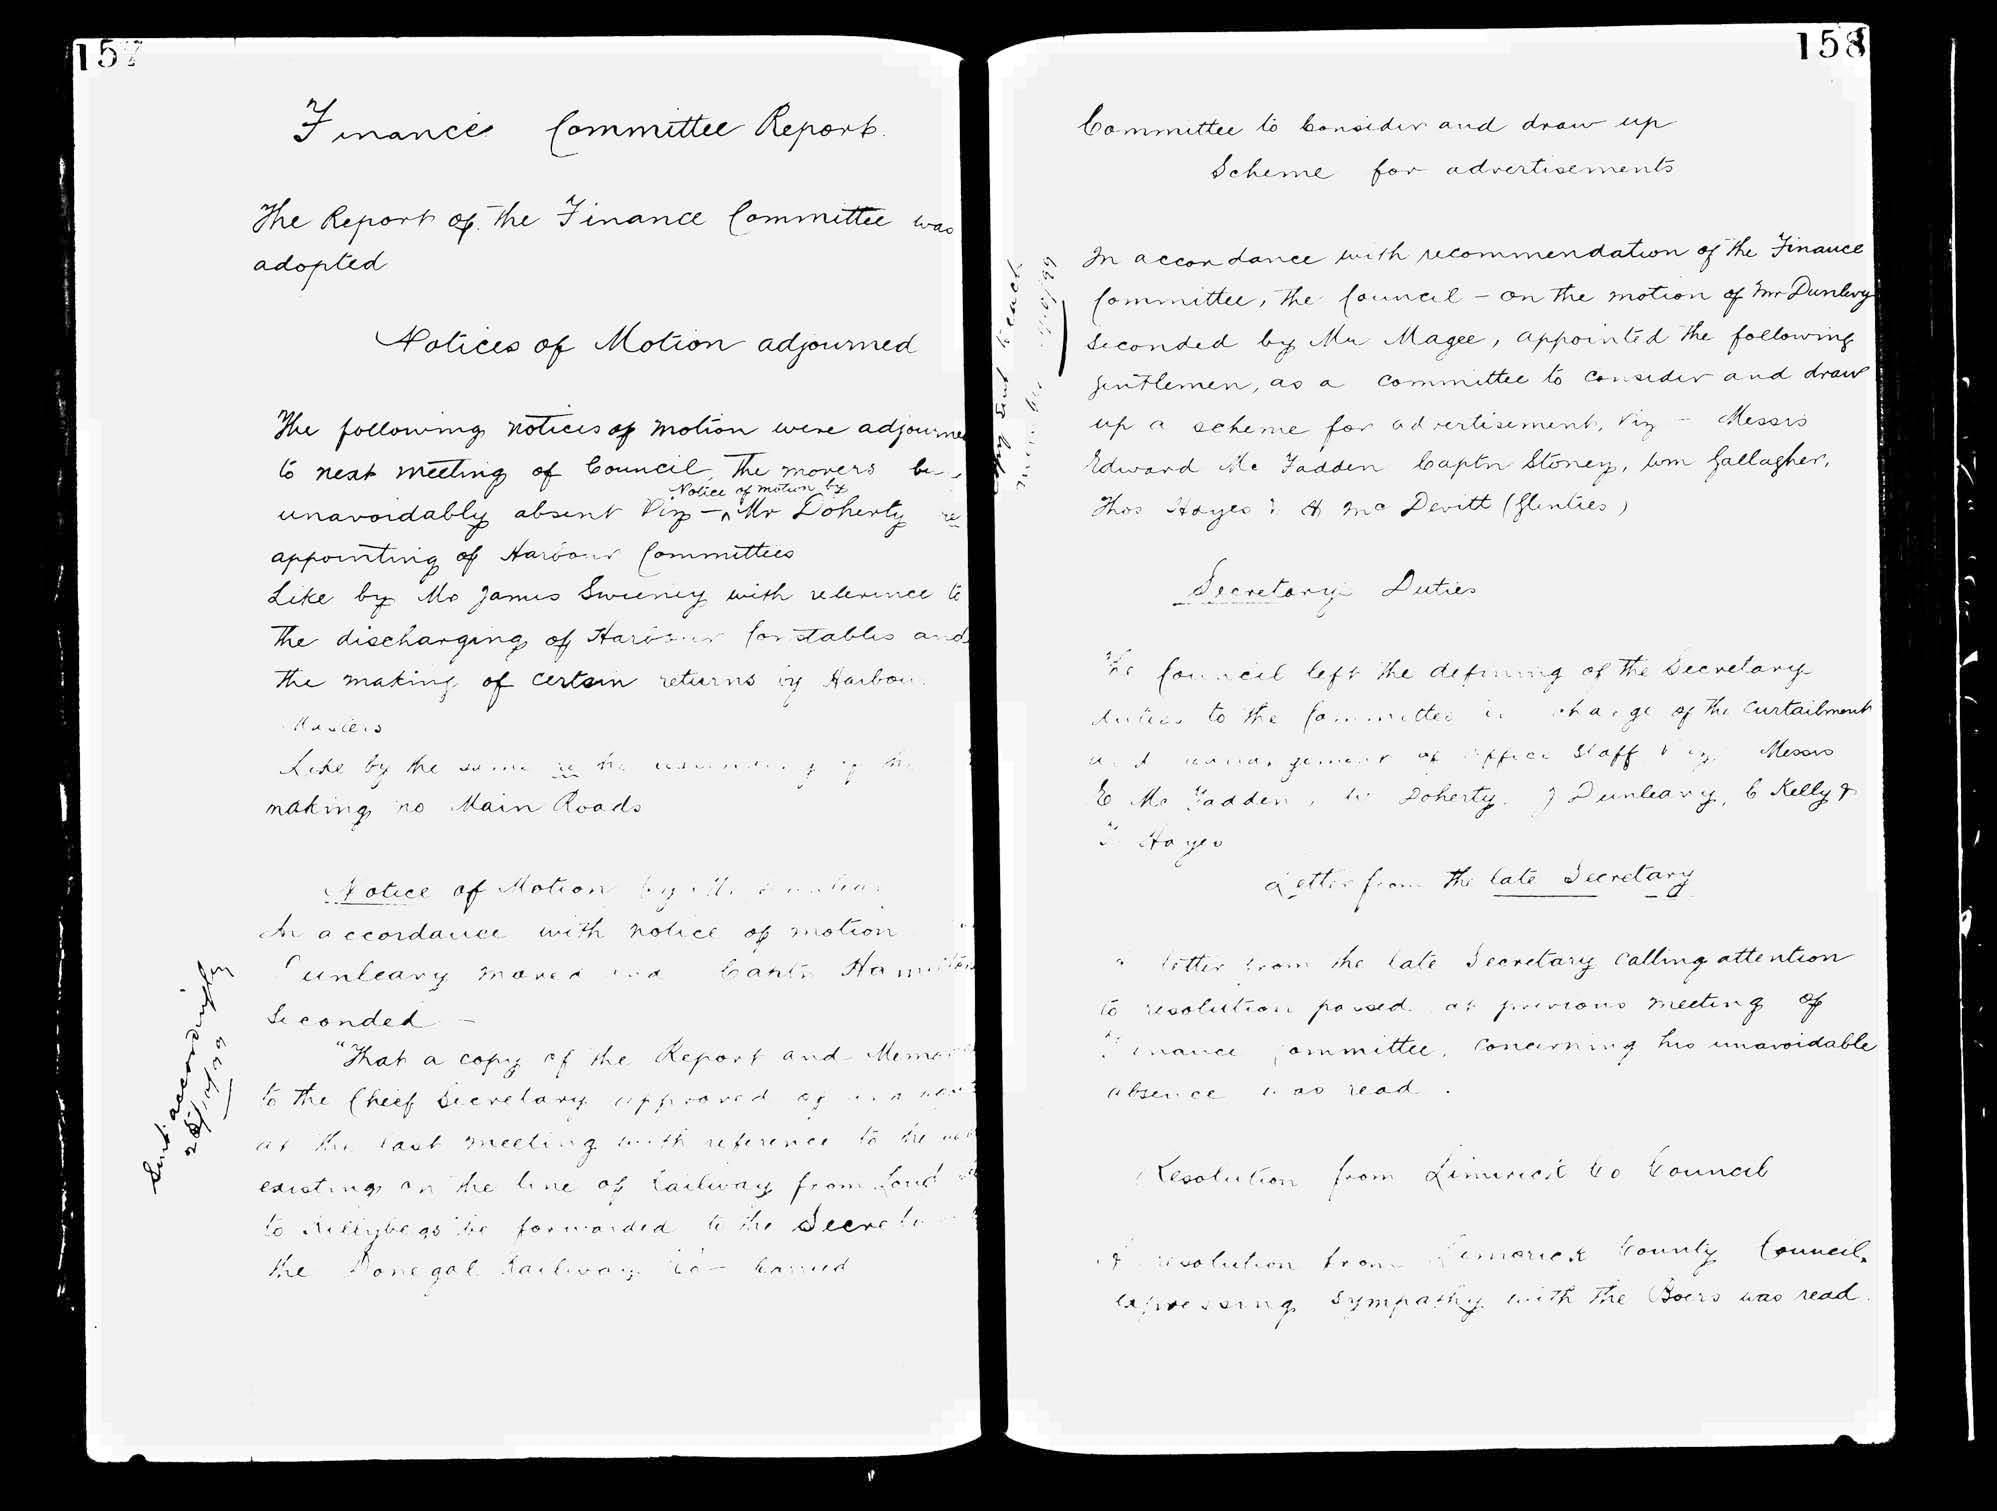 157
Finance Committee Report.
The Report of the Finance Committee was
adopted
Notices of Motion adjourned
The following notices of motion were adjourned
to next meeting of Council, the movers
Notice of motion by
unavoidably absent Viz - Mr Doherty re
appointing of Harbour Committees
Like by Mr James Sweeney with reference to
the discharging of Harbour Constables and
the making of certain returns by Harbour
Masters
Like by the same re the
making no Main Roads
Notice of Motion by Mr Dunleavy
In accordance with notice of motion
Dunleavy moved and Captn Hamilton
Seconded -
"That a copy of the Report and
to the Chief Secretary approved of
at the last meeting with reference to the
existing on the line of Railway from
to Killybegs be forwarded to the
the Donegal Railway Co - Carried
Sent accordingly
158
Committee to Consider and draw up
Scheme for advertisements
In accordance with recommendation of the Finance
Committee, the Council - on the motion of Mr Dunlevy
seconded by Mr Magee, appointed the following
gentlemen, as a committee to consider and draw
up a scheme for advertisement, Viz - Messrs
Edward Mc Fadden Captn Stoney, Wm Gallagher,
Thos Hayes & H McDevitt (Glenties)
Secretary Duties
The Council left the defining of the Secretary
duties to the Committee in charge of the Curtailment
and rearrangement of office Staff Viz Messrs
E Mc Fadden, W Doherty, J Dunleavy, C Kelly &
T Hayes
Letter from the late Secretary
A letter from the late Secretary calling attention
to resolution passed at previous meeting of
Finance Committee, concerning his unavoidable
absence was read.
Resolution from Limerick Co Council
A resolution from Limerick County Council,
expressing sympathy with the Boers was read.
Copy sent to each